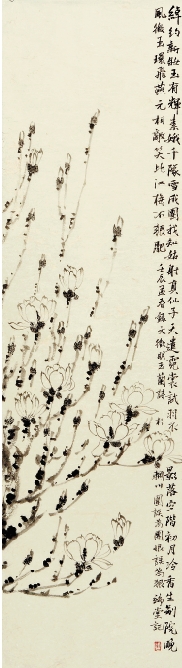 綽約新妝玉有輝素娥千隊雪成圍我知姑射真仙子天遣霓裳試羽衣影落空階初月冷香生別院晚
風微玉環飛燕元相敵笑比江梅不恨肥壬辰孟春錄文徵明玉蘭詩於